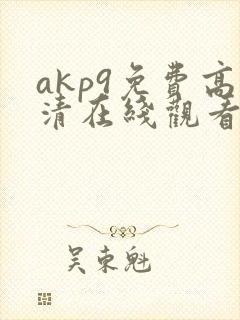 akp9免费高
清在线觀看
吴東魁